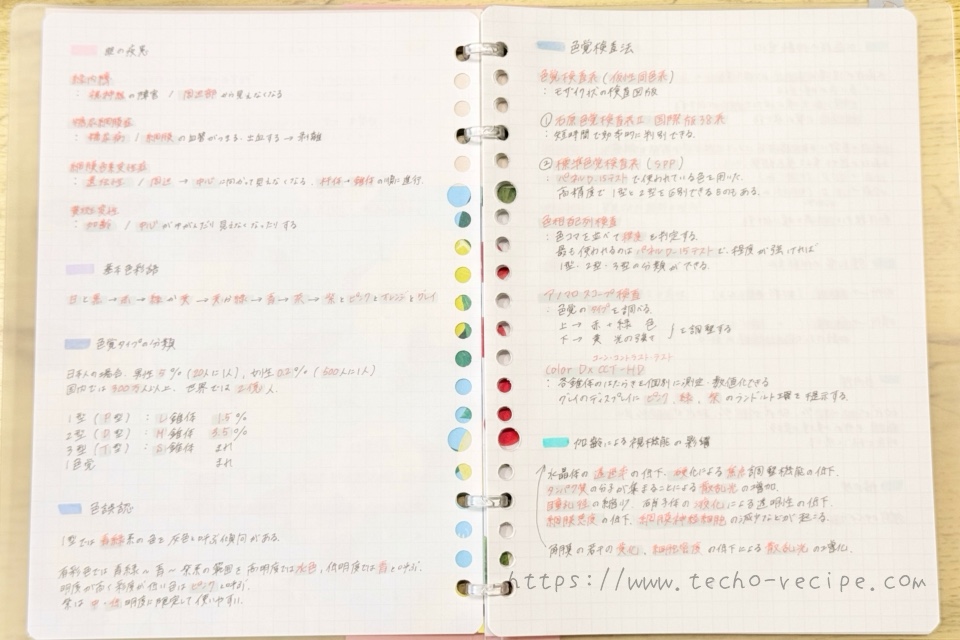 眼の疾患
緑内障
：視神経の障害 / 周辺部から見えなくなる
糖尿網膜症
：糖尿病 / 網膜の血管がつまる、出血する → 剥離
網膜色素変性症
：遺伝性 / 周辺 → 中心に向かって見えなくなる、杆体→錐体の順に進行.
黄斑変性
：加齢 / 中心がゆがんだり見えなくなったりする
基本色彩語
白と黒 → 赤 → 緑か黄 → 黄か緑 → 青 → 茶 → 紫とピンクとオレンジとグレイ
色覚タイプの分類
日本人の場合、男性5%(20人に1人)、女性0.2%(500人に1人)
国内では300万人以上、世界では2億人.
1型(P型)：L錐体 1.5%
2型(D型)：M錐体 3.5%
3型(T型)：S錐体 まれ
1色覚 まれ
色誤認
1型では青緑系の色を灰色と呼ぶ傾向がある.
有彩色では青緑～青～紫系の範囲を高明度では水色、低明度では青と呼ぶ.
明度が高く彩度が低い色はピンクと呼ぶ.
紫は中・低明度に限定して使いやすい.
色覚検査法
色覚検査表(仮性同色表)
：モザイク状の検査図版
①石原色覚検査表Ⅱ 国際版38表
：短時間で効率的に判別できる.
②標準色覚検査表(SPP)
：パネルD-15テストで使われている色を用いた.
高精度で1型と2型を区別できるものもある.
色相配列検査
：色コマを並べて程度を判定する.
最も使われるのはパネルD-15テストで、程度が強ければ
1型・2型・3型の分類ができる.
アノマロスコープ検査
：色覚のタイプを調べる.
上 → 赤+緑 色
下 → 黄 光の強さ
を調整する
コーン・コントラスト・テスト
Color Dx CCT-HD
：各錐体のはたらきを個別に測定・数値化できる
グレイのディスプレイにピンク、緑、紫のランドルト環を提示する.
加齢による視機能の影響
水晶体の透過率の低下、硬化による焦点調整機能の低下.
タンパク質の分子が集まることによる散乱光の増加.
瞳孔径の縮小、硝子体の液化による透明性の低下.
網膜感度の低下、網膜神経細胞の減少などが起こる.
角膜の若干の黄化、細胞密度の低下による散乱光の増化.
https://www.techo-recipe.com